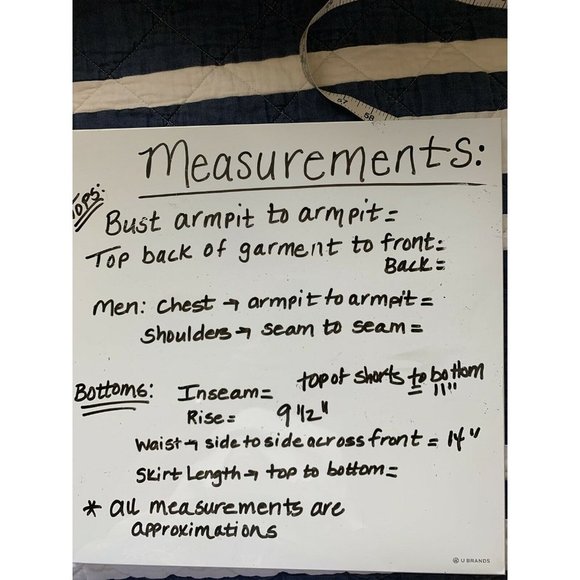 Measurements:
TOPS:
Bust armpit to armpit=
Top back of garment to front=
Back=
Men: Chest → armpit to armpit=
Shoulders → seam to seam=
Bottoms: Inseam= top of shorts to bottom
11"
Rise= 9 1/2"
Waist → side to side across front = 14"
Skirt Length → top to bottom=
* all measurements are
approximations
U BRANDS
67
68